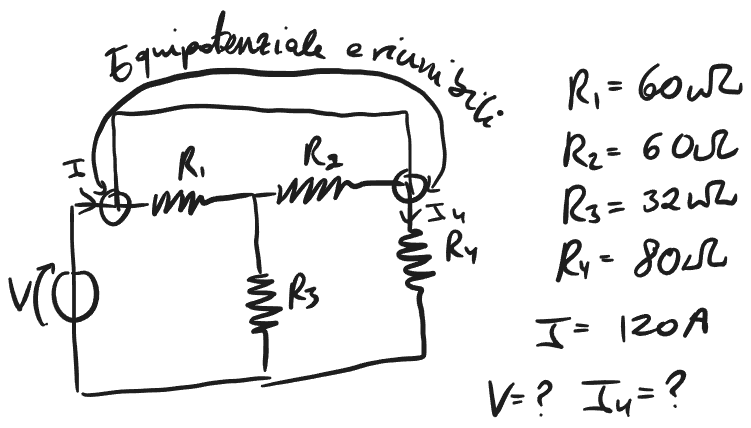 Equipotenziale e riunibili
I
R1
R2
I4
R4
V
R3
R1 = 60 Ω
R2 = 60 Ω
R3 = 32 Ω
R4 = 80 Ω
I = 120 A
V = ? I4 = ?